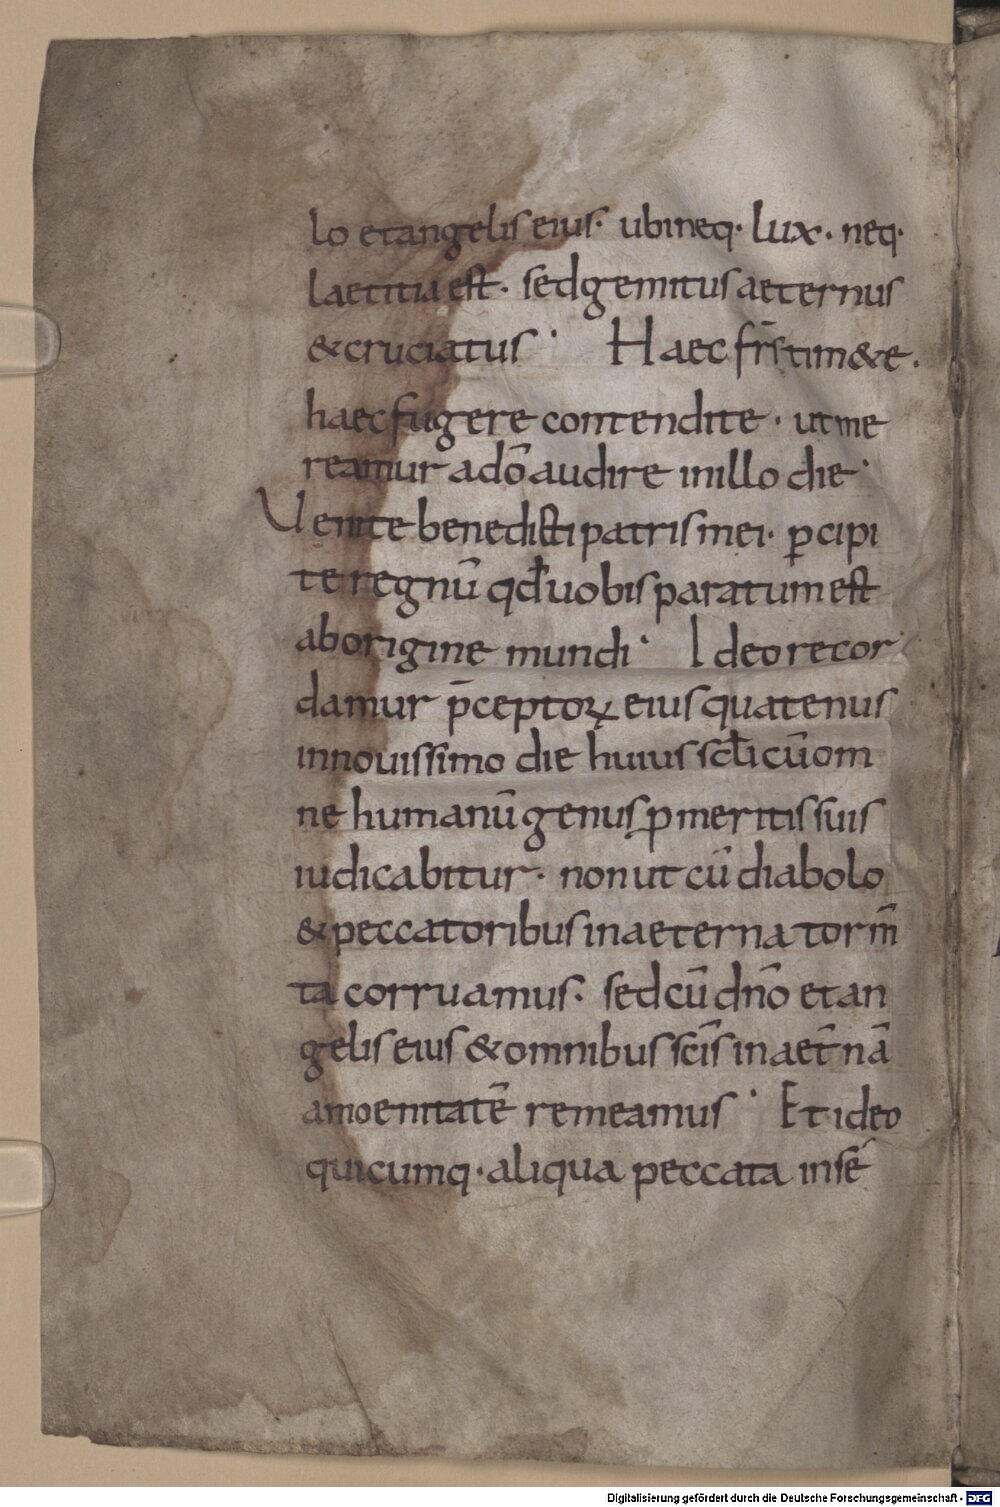 lo et angelis eius· ubi neq· lux· neq·
laetitia est· sed gemitus aeternus
& cruciatus· Haec fr̄s tim&e·
haec fugere contendite· ut me
reamur a dn̄o audire in illo die·
Uenite benedicti patris mei· ꝑcipi
te regnū qđ uobis paratum est
ab origine mundi· Ideo recor
damur p̄ceptoꝝ eius quatenus
in nouissimo die huius sc̄li cū om
ne humanū genus ꝑ meritis suis
iudicabitur· non ut cū diabolo
& peccatoribus in aeterna torm̄
ta corruamus· sed cū dn̄o et an
gelis eius & omnibus sc̄is in aet̄nā
amoenitatē remeamus· Et ideo
quicumq· aliqua peccata in sé
Digitalisierung gefördert durch die Deutsche Forschungsgemeinschaft - DFG